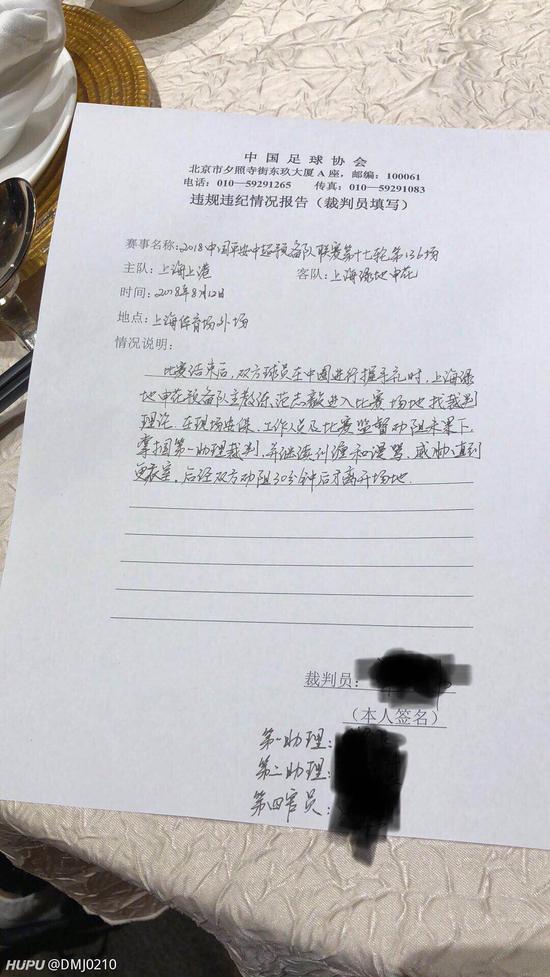 中国足球协会
北京市夕照寺街东玖大厦A座，邮编：100061
电话：010—59291265 传真：010—59291083
违规违纪情况报告（裁判员填写）
赛事名称：2018中国平安中超预备队联赛第十七轮第136场
主队：上海上港 客队：上海绿地申花
时间：2018年8月12日
地点：上海体育场外场
情况说明：
比赛结束后，双方球员在中圈进行握手礼时，上海绿
地申花预备队主教练范志毅进入比赛场地找裁判
理论，在现场安保、工作人员及比赛监督劝阻未果下，
掌掴第一助理裁判，并继续纠缠和谩骂，威胁直到
更衣室，后经双方劝阻30分钟后才离开场地.
裁判员：
（本人签名）
第一助理：
第二助理：
第四官员：
HUPU @DMJ0210